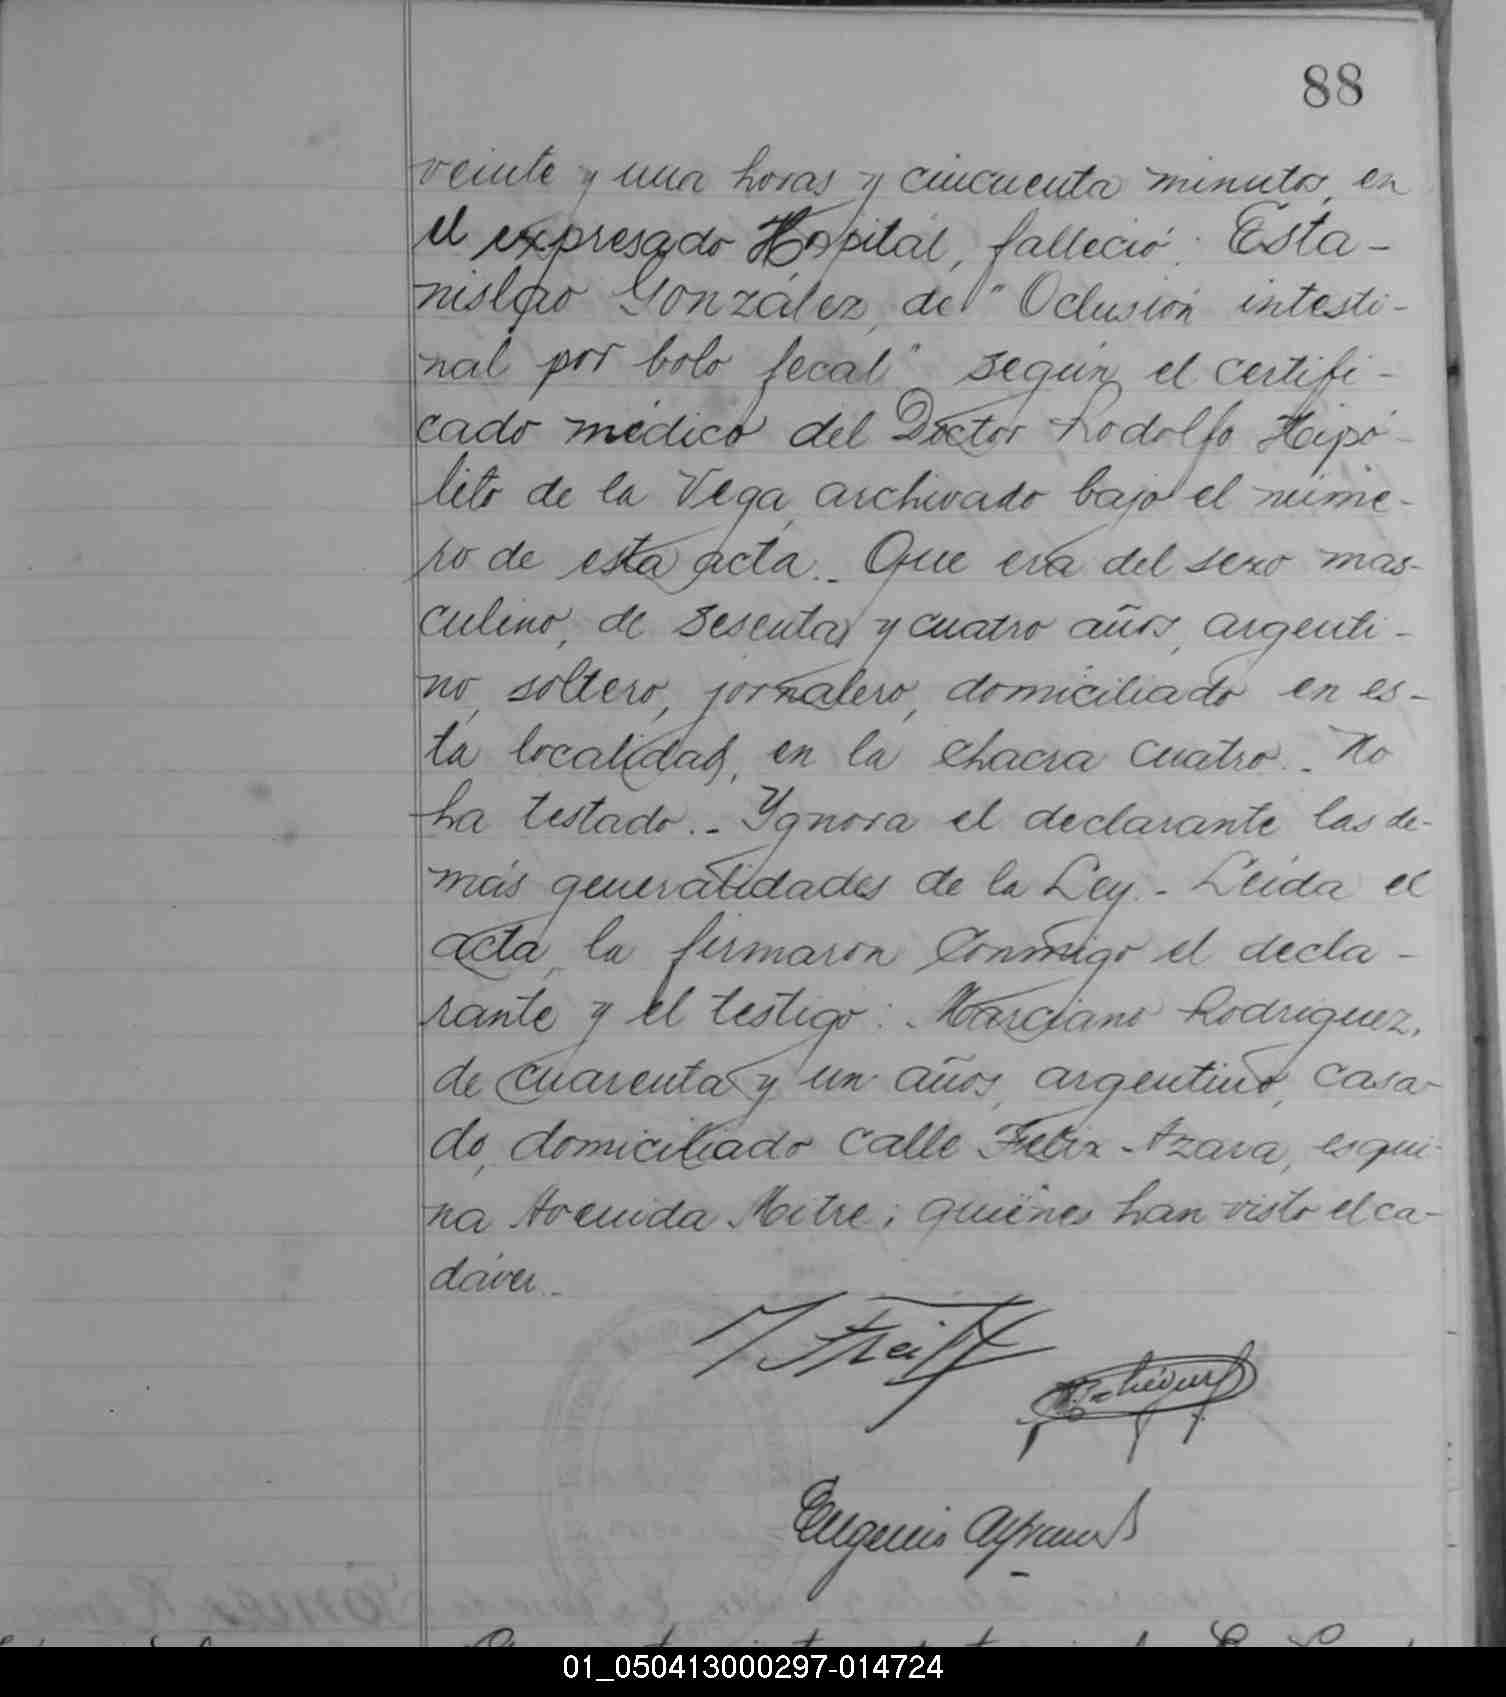 88
veinte y una horas y cincuenta minutos, en
el expresado Hospital, falleció: Esta-
nislao González, de "Oclusión intesti-
nal por bolo fecal" según el certifi-
cado médico del Doctor Rodolfo Hipó-
lito de la Vega, archivado bajo el núme-
ro de esta acta.- Que era del sexo mas-
culino, de sesenta y cuatro años, argenti-
no, soltero, jornalero, domiciliado en es-
ta localidad, en la chacra cuatro.- No
ha testado.- Ygnora el declarante las de-
más generalidades de la Ley.- Leída el
acta, la firmaron conmigo el decla-
rante y el testigo: Marciano Rodriguez,
de cuarenta y un años, argentino, casa-
do, domiciliado calle Felix Azara, esqui-
na Avenida Mitre; quiénes han visto el ca-
dáver.-
Eugenio
01_050413000297-014724